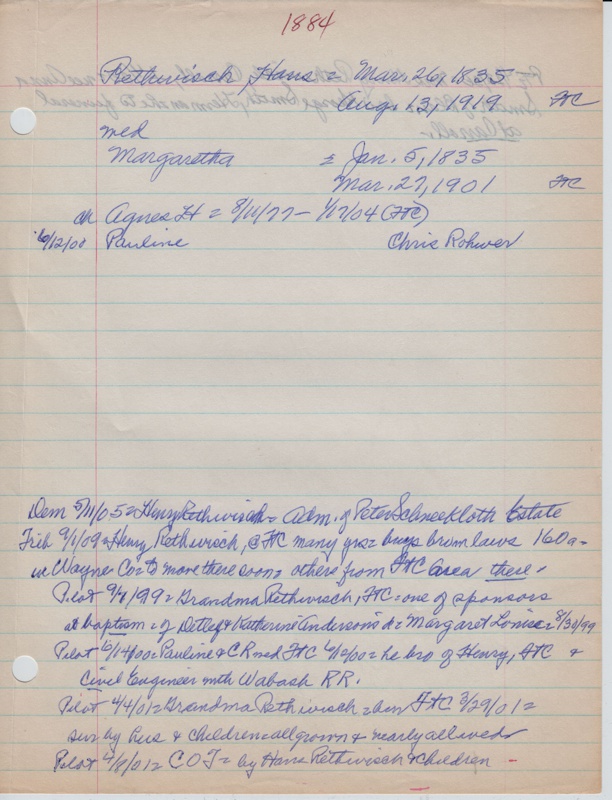 1884
Rethwisch, Hans = Mar. 26, 1835 -
Aug. 13, 1919 FtC
med
Margaretha = Jan. 5, 1835
Mar. 27, 1901 FtC
ch Agnes H = 8/10/77 - 1/17/04 (FtC)
6/12/00 Pauline Chris Rohwer
Dem 5/11/05 = Henry Rethwisch = Adm. of Peter Schneekloth Estate
Trib 9/1/09 = Henry Rethwisch, @ FtC many yrs = buys broinlaws 160 a -
in Wayne Co = to move there soon = others from FtC area there.
Pilot 9/8/99 = Grandma Rethwisch, FtC = one of sponsors
at baptism = of Detlef & Katherine Anderson's d = Margaret Louise = 8/30/99
Pilot 6/14/00 = Pauline & CR med FtC 6/12/00 = he bro of Henry, FtC &
Civil Engineer with Wabash RR.
Pilot 4/4/01 = Grandma Rethwisch = bur FtC 3/29/01 =
surv by hus & children all grown & nearly all weds
Pilot 4/8/01 = COT = by Hans Rethwisch & children -